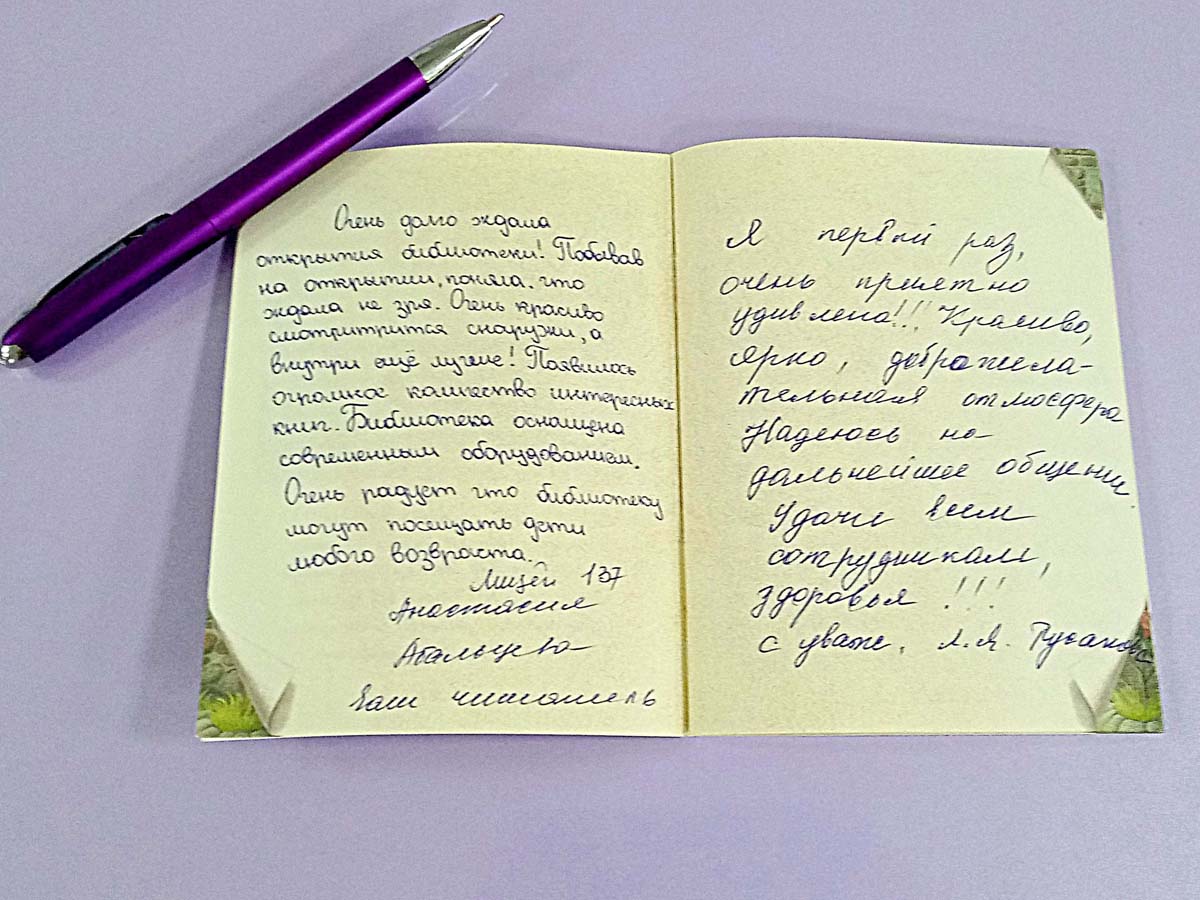 Очень долго ждала
открытия библиотеки! Побывав
на открытии, поняла, что
ждала не зря. Очень красиво
смотритрится снаружи, а
внутри ещё лучше! Появилось
огромное количество интересных
книг. Библиотека оснащена
современным оборудованием.
Очень радует что библиотеку
могут посещать дети
любого возвраста.
Лицей 137
Анастасия
Абальцева
Ваш читатель
Я первый раз,
очень приятно
удивлена!!! Красиво,
ярко, доброжела-
тельная атмосфера
Надеюсь на
дальнейшее общение.
Удачи всем
сотрудникам,
здоровья !!!
с уваж. Л.Я.